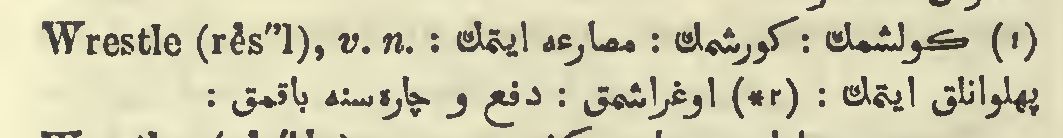 Wrestle (rĕs″l), v. n. : (١) كولشمك : كورشمك : مصارعه ايتمك
پهلوانلق ايتمك : (٢*) اوغراشمق : دفع و چاره‌سنه باقمق :